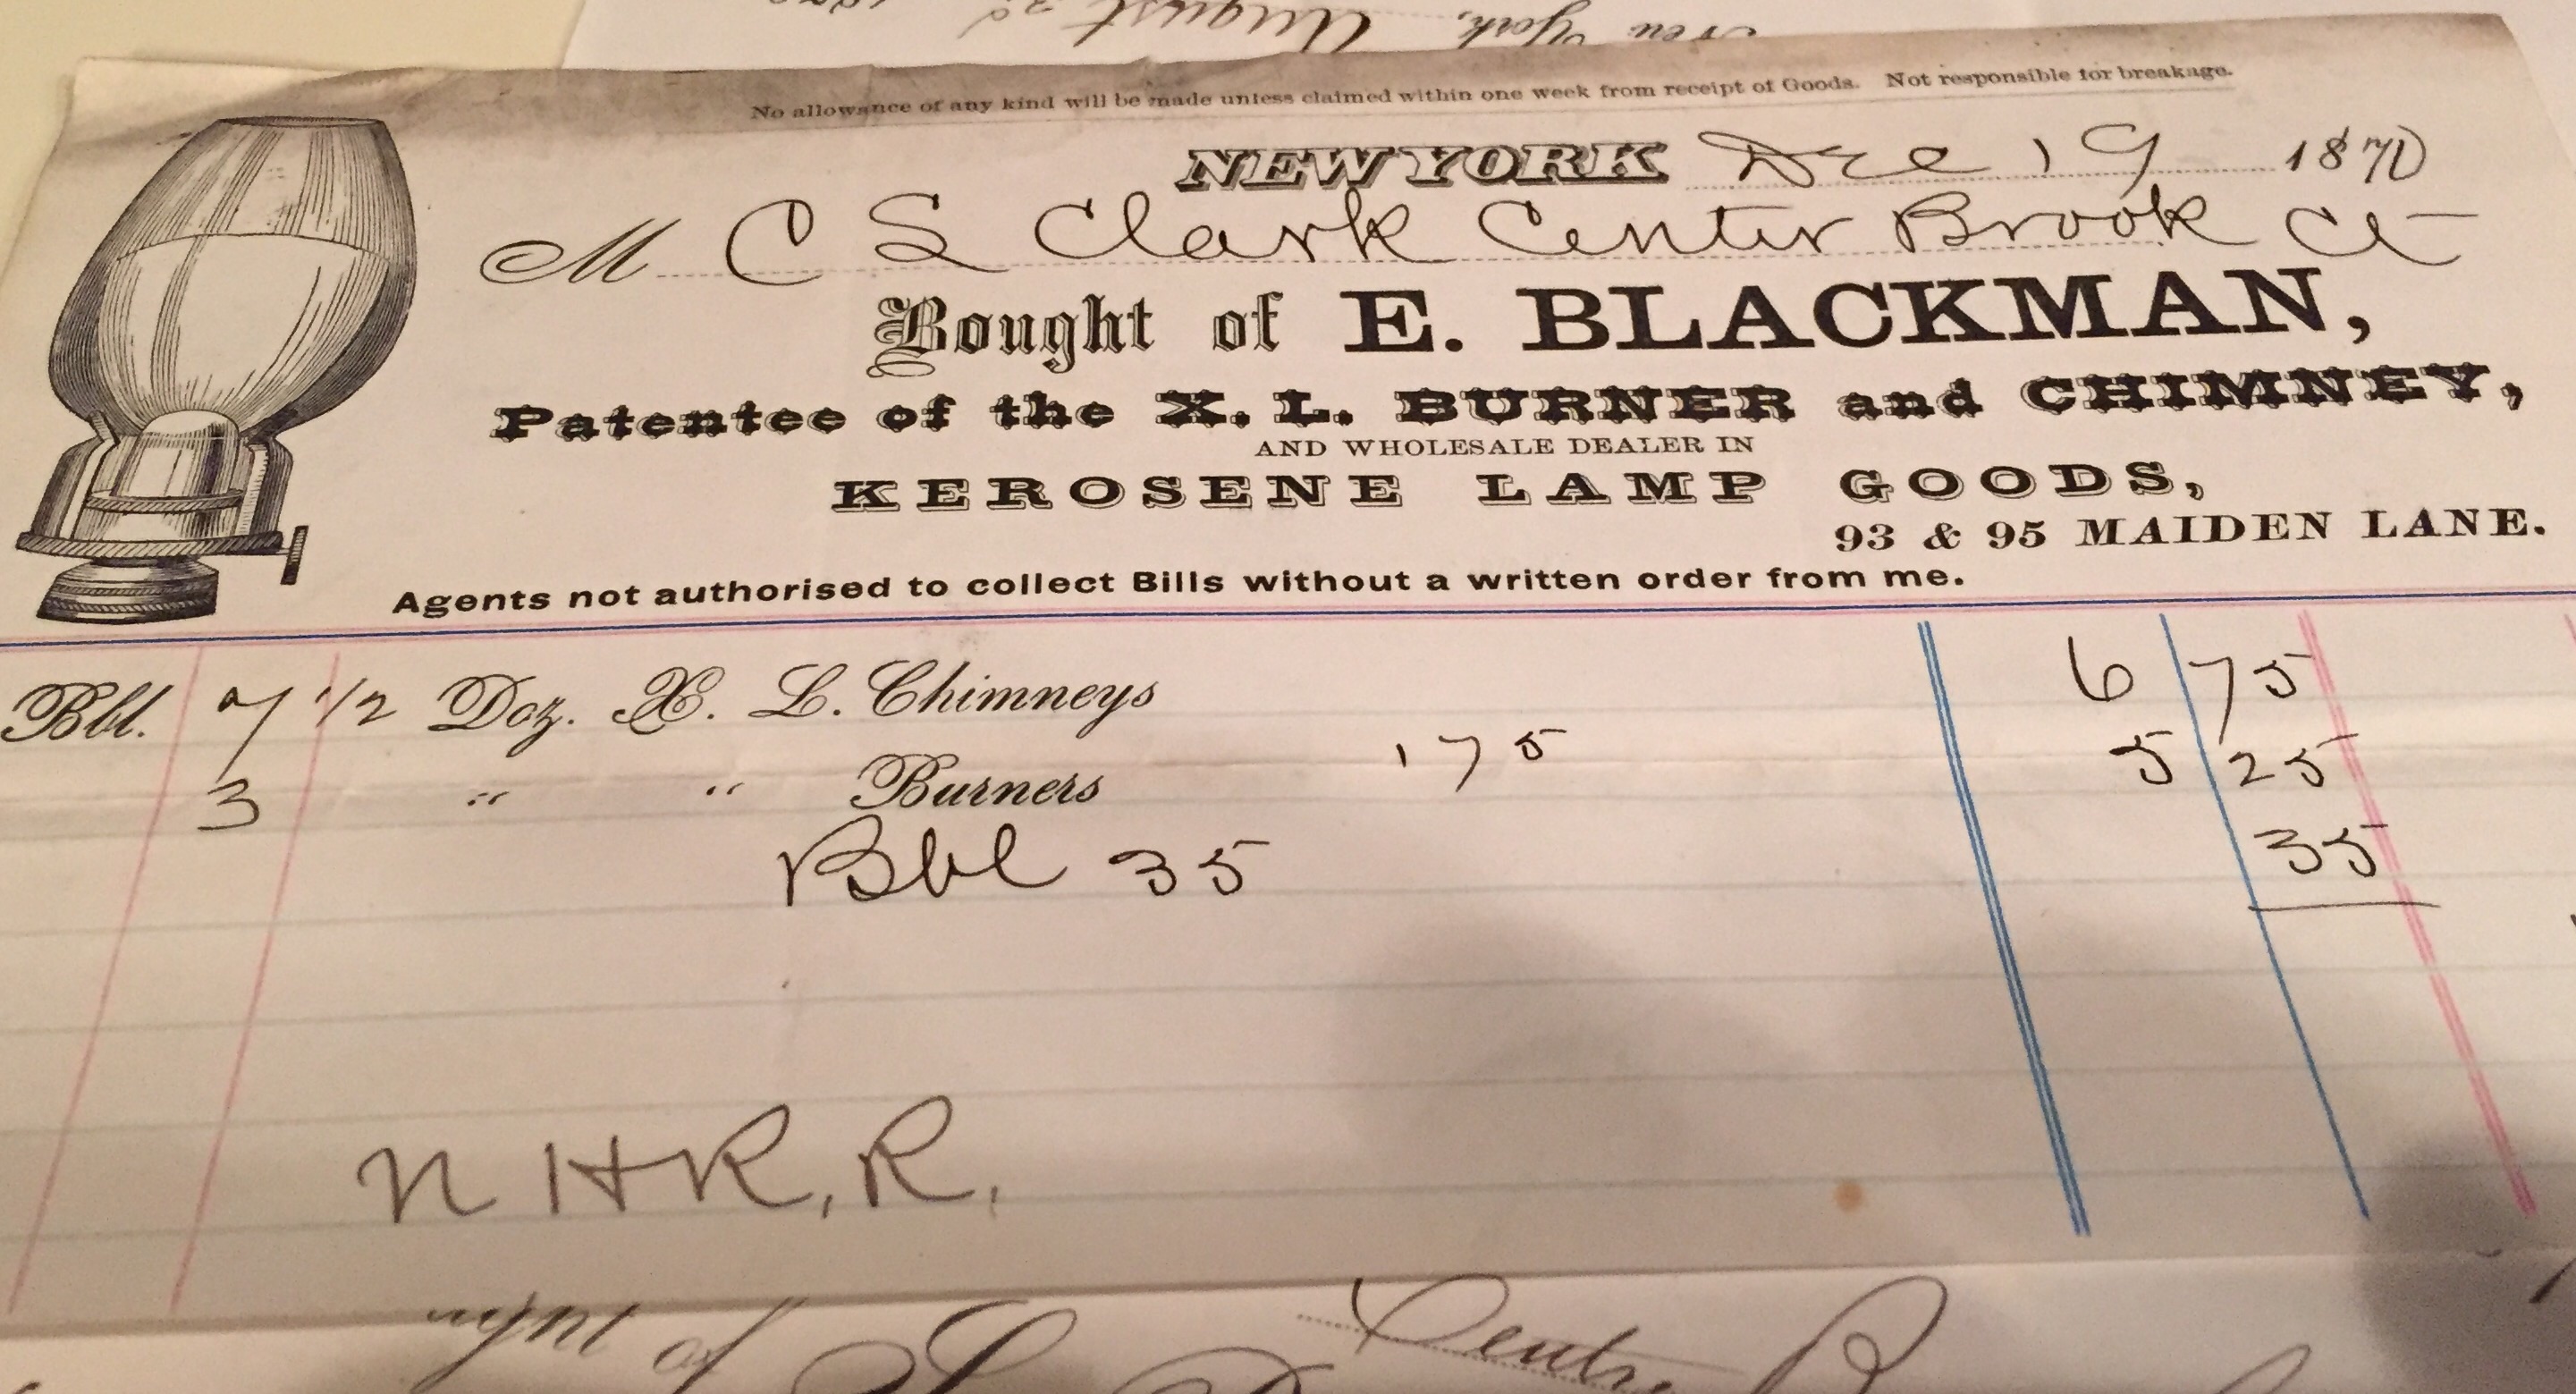 New York, August 2d 1870
No allowance of any kind will be made unless claimed within one week from receipt of Goods. Not responsible for breakage.
NEW YORK Dec 19 1870
M C S Clark Center Brook Ct
Bought of E. BLACKMAN,
Patentee of the X. L. BURNER and CHIMNEY,
AND WHOLESALE DEALER IN
KEROSENE LAMP GOODS,
93 & 95 MAIDEN LANE.
Agents not authorised to collect Bills without a written order from me.
Bbl. 7 1/2 Doz. X. L. Chimneys 6 75
3 " " Burners 175 5 25
Bbl 35 35
N H R. R.
of